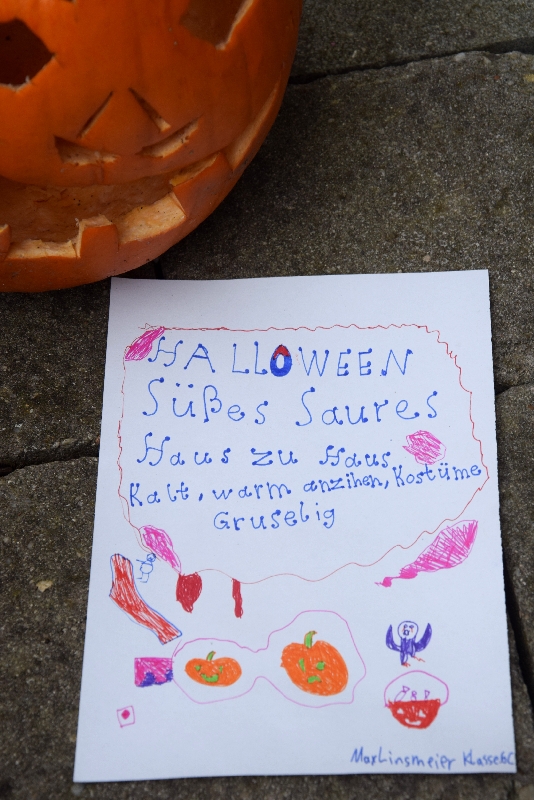 HALLOWEEN
Süßes Saures
Haus zu Haus
Kalt, warm anzihen, Kostüme
Gruselig
Max Linsmeier Klasse6C